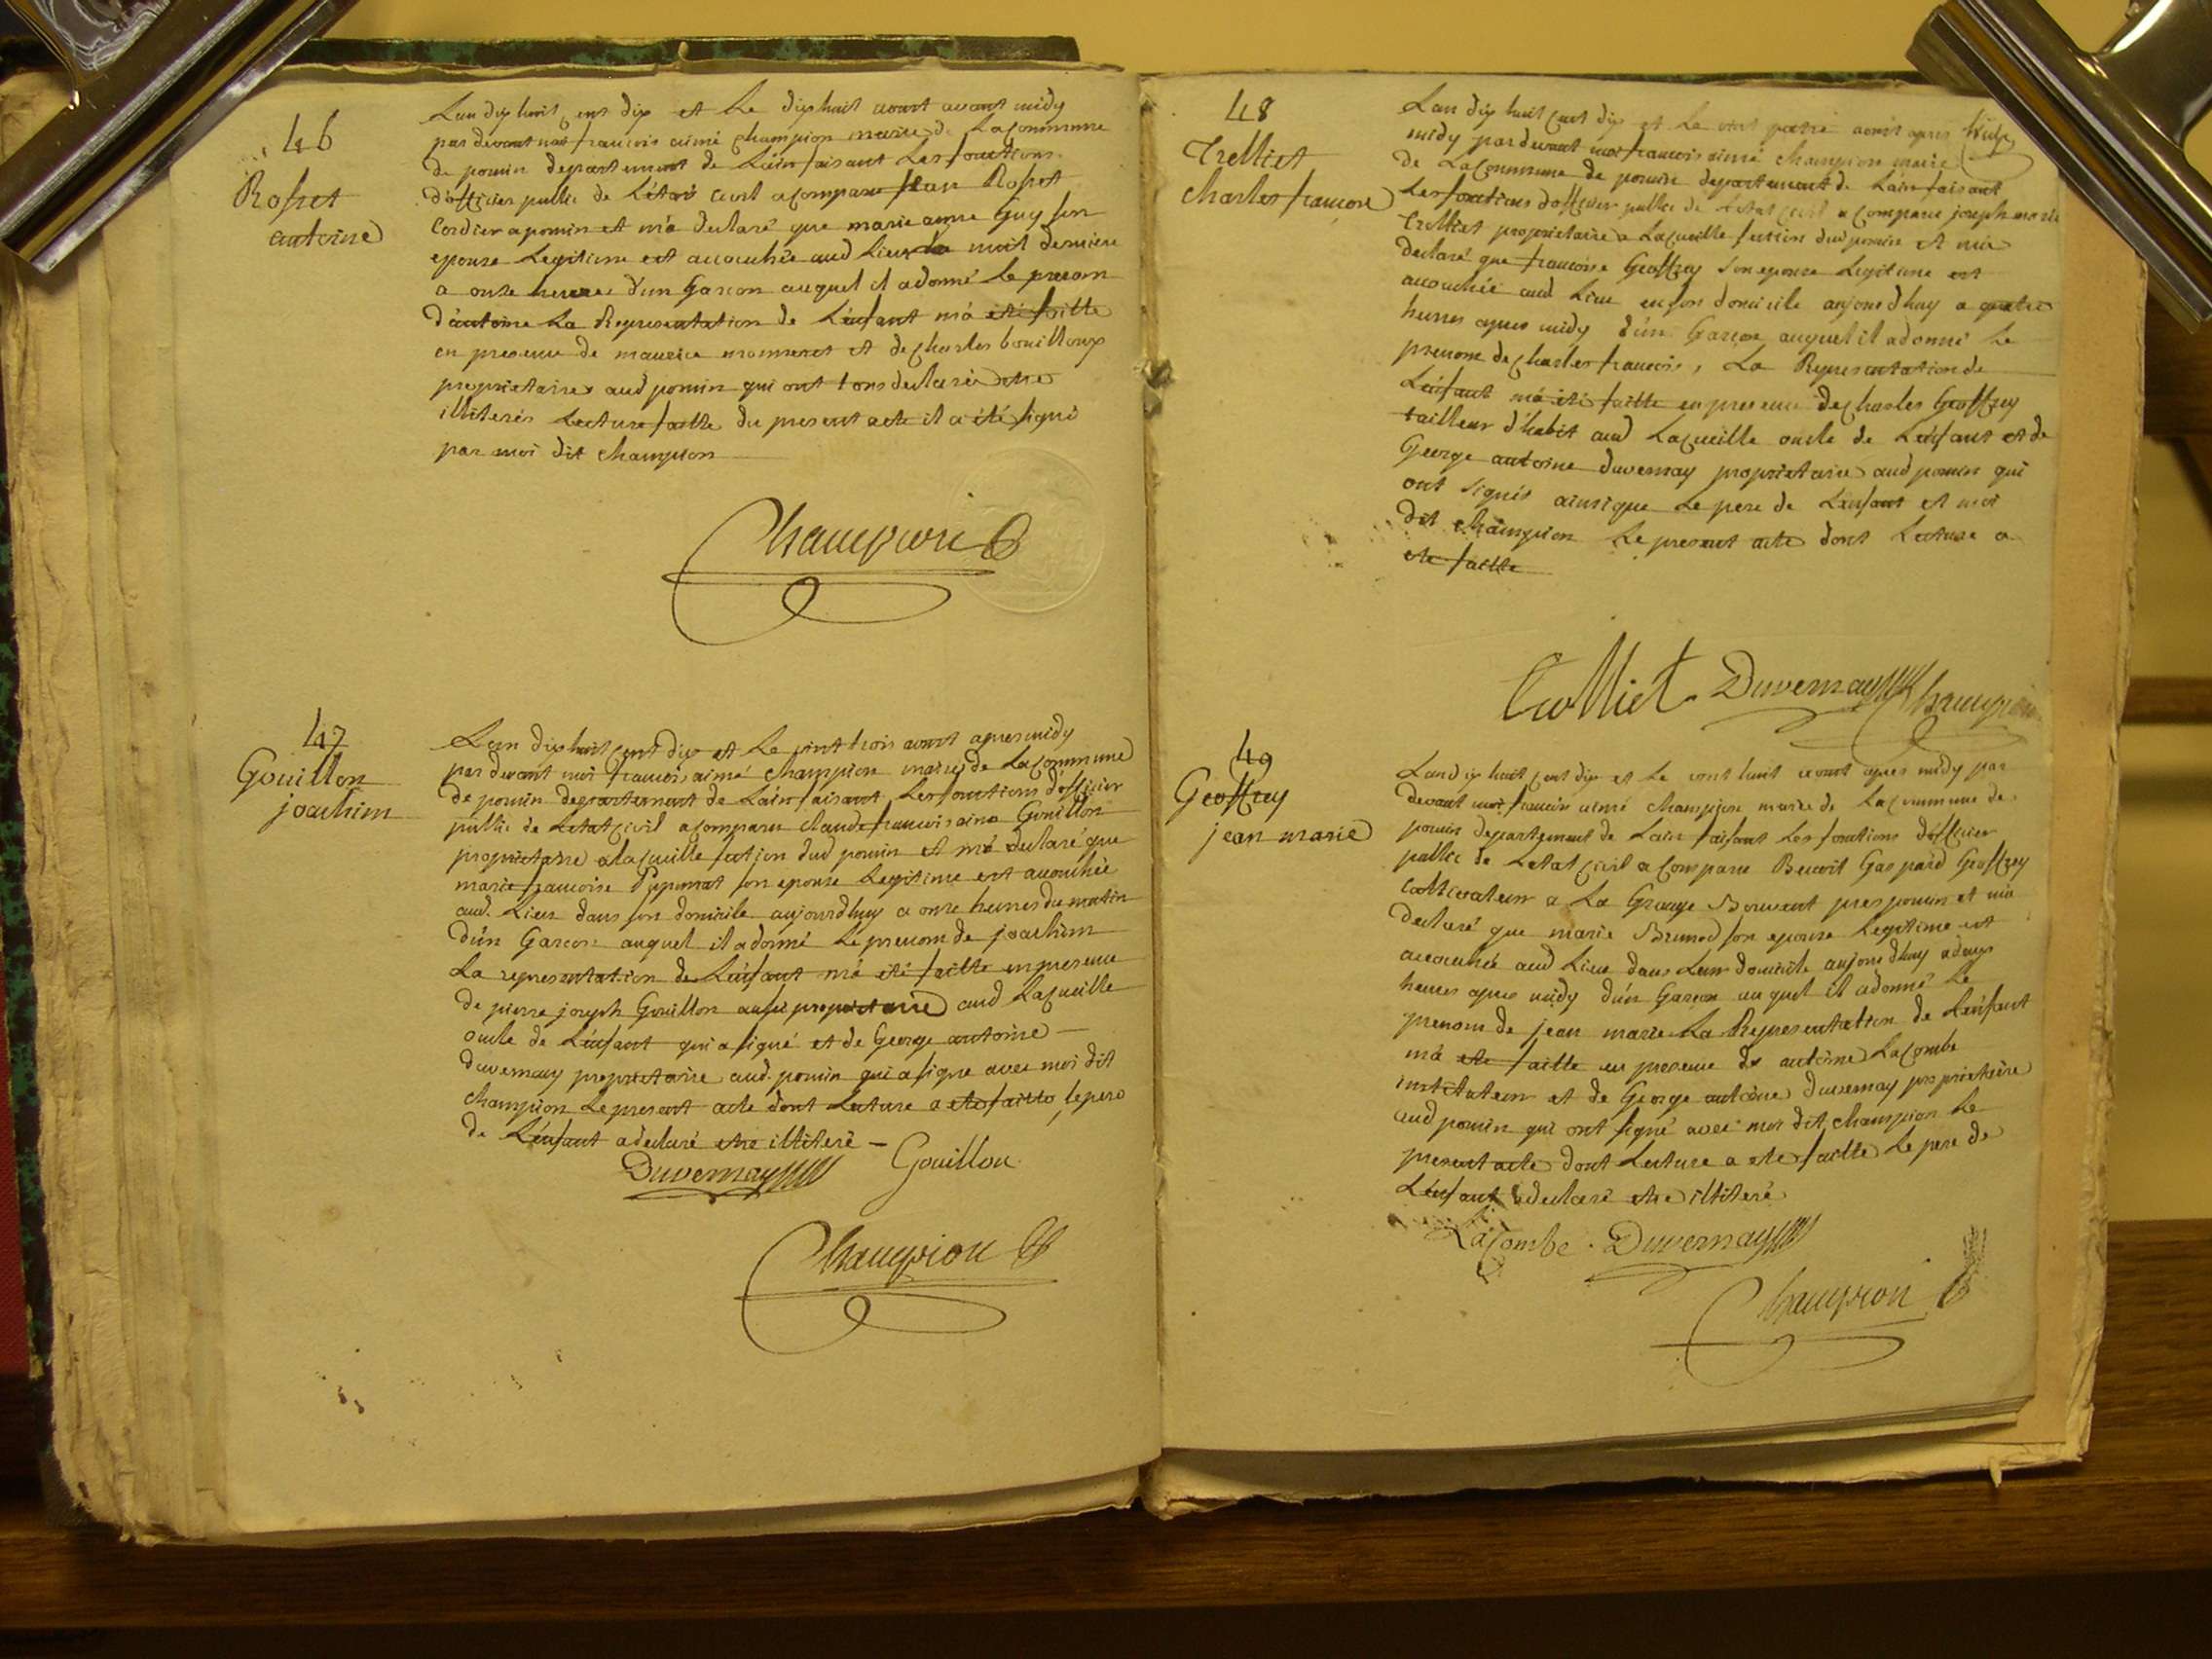 46
Rosset
antoine
Lan dix huit cent dix et Le dix huit aoust avant midy
par devant moi francois aimé champion maire de La Commune
de poncin departement de Lain faisant Les fonctions
d'officier public de Létat civil a comparu jean Rosset
Cordier a poncin et m'a declaré que marie anne Guy son
epouse Legitime est accouchée aud Lieu la nuit derniere
a onze heures d'un Garcon auquel il a donné le prenom
d'antoine La Representation de L'enfant m'a eté faitte
en presence de maurice monneret et de charles bouilloux
proprietaires aud poncin qui ont tous declarés etre
illiterés Lecture faitte du present acte il a été signé
par moi dit champion
Champion
47
Gouillon
joachim
Lan dix huit cent dix et Le vint trois aoust apres midy
par devant moi francois aimé champion maire de La Commune
de poncin departement de Lain faisant Les fonctions d'officier
public de Letat Civil a comparu claude francois aimé Gouillon
proprietaire a laCueille section dud poncin et m'a declaré que
marie francoise son epouse Legitime est accouchée
aud. Lieu dans son domicile aujourdhuy a onze heures du matin
d'un Garcon auquel il a donné Le prenom de joachim
La representation de L'enfant m'a eté faitte en presence
de pierre joseph Gouillon aussi proprietaire aud LaCueille
oncle de L'enfant qui a signé et de George antoine
duvernay proprietaire aud. poncin qui a signé avec moi dit
champion Le present acte dont Lecture a eté faitte, le pere
de L'enfant a declaré etre illiteré
Duvernay Gouillon
Champion
48
Trelliet
charles francois
Lan dix huit cent dix et Le vint quatre aoust apres
midy par devant moi francois aimé champion maire
de La Commune de poncin departement de Lain faisant
Les fonctions d'officier public de Letat civil a comparu joseph marie
Trelliet proprietaire a LaCueille section dud poncin et m'a
declaré que francoise Geoffrey son epouse Legitime est
accouchée aud Lieu en son domicile aujourdhuy a quatre
heures apres midy d'un Garcon auquel il a donné Le
prenom de charles francois, La Representation de
L'enfant m'a eté faitte en presence de charles Geoffrey
tailleur d'habit aud LaCueille oncle de L'enfant et de
George antoine duvernay proprietaire aud poncin qui
ont signés ainsi que Le pere de L'enfant et moi
dit champion Le present acte dont Lecture a
ete faitte
Trelliet Duvernay Champion
49
Geoffrey
jean marie
Lan dix huit cent dix et Le vint huit aoust apres midy par
devant moi francois aimé champion maire de La Commune de
poncin departement de Lain faisant Les fonctions d'officier
public de Letat civil a Comparu Benoit Gaspard Geoffrey
Cultivateur a La Grange Bouvent pres poncin et m'a
declaré que marie Brunod son epouse Legitime est
accouchée aud Lieu dans Leur domicile aujourdhuy a deux
heures apres midy d'un Garcon auquel il a donné Le
prenom de jean marie La Representation de L'enfant
m'a eté faitte en presence de antoine LaCombe
instituteur et de George antoine duvernay proprietaire
aud poncin qui ont signé avec moi dit champion Le
present acte dont Lecture a ete faitte Le pere de
L'enfant a declaré etre illiteré
LaCombe . Duvernay
Champion